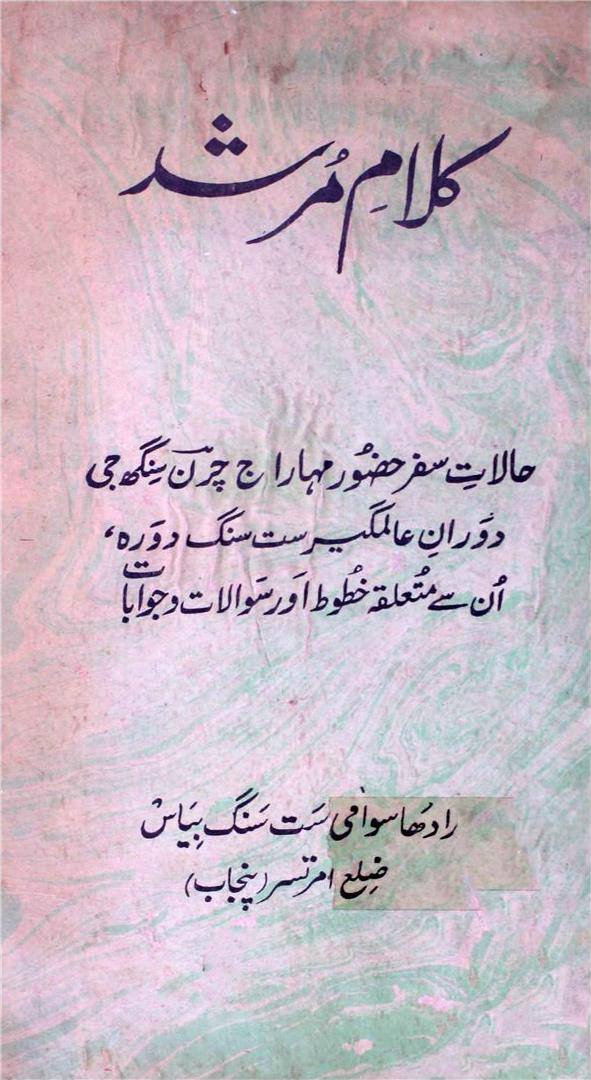 کلامِ مُرشد
حالاتِ سفر حضُور مہاراج چرن سِنگھ جی
دَورانِ عالمگیر ست سنگ دَورہ،
اُن سے مُتعلقہ خطُوط اَور سَوالات و جوابات
رادھا سوامی سَت سَنگ بِیَاس
ضِلع امرتسر (پنجاب)